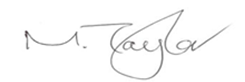 M. Taylor